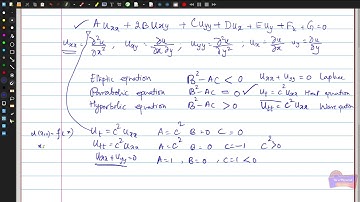 ✓ A uxx + 2B uxy + C uyy + D ux + E uy + Fx + G = 0
uxx = ∂²u/∂x² , uxy = ∂u/∂x ∂y uyy = ∂²u/∂y² , ux = ∂u/∂x uy = ∂u/∂y
Elliptic equation B² - AC < 0 uxx + uyy = 0 Laplace
Parabolic equation B² - AC = 0 ✓ ut = c² uxx Heat equation
Hyperbolic equation B² - AC > 0 utt = c² uxx Wave equation
ut = c² uxx A = c² B = 0 C = 0
x: utt = c² uxx A = c² B = 0 C = -1 c² > 0
uxx + uyy = 0 A = 1, B = 0, C = 1 < 0